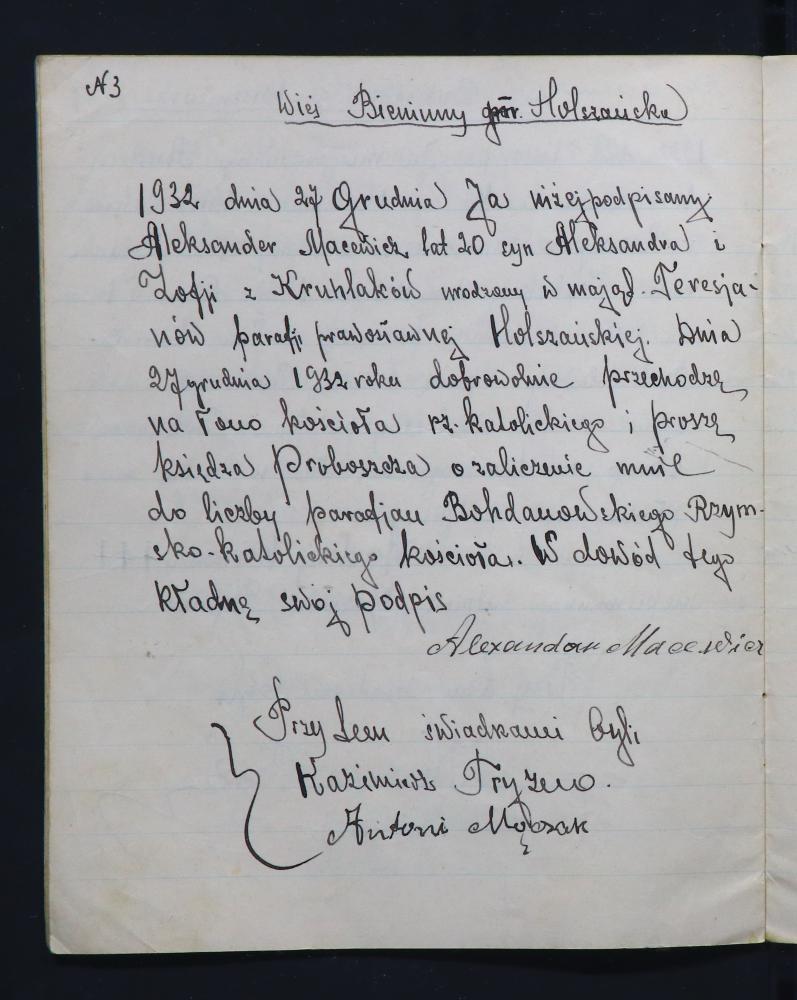 N3
Wieś Bieniuny par. Holszańska
1932 dnia 27 Grudnia Ja niżej podpisany
Aleksander Macewicz lat 20 syn Aleksandra i
Zofji z Kruhlaków urodzony w mająt. Teresja-
nów parafji prawosławnej Holszańskiej. Dnia
27 grudnia 1932 roku dobrowolnie przechodzę
na łono kościoła rz.-katolickiego i proszę
księdza Proboszcza o zaliczenie mnie
do liczby parafjan Bohdanowskiego Rzym-
sko-katolickiego kościoła. W dowód tego
kładnę swój podpis
Alexander Macewicz
Przytem świadkami byli
Kazimierz Tryzno.
Antoni